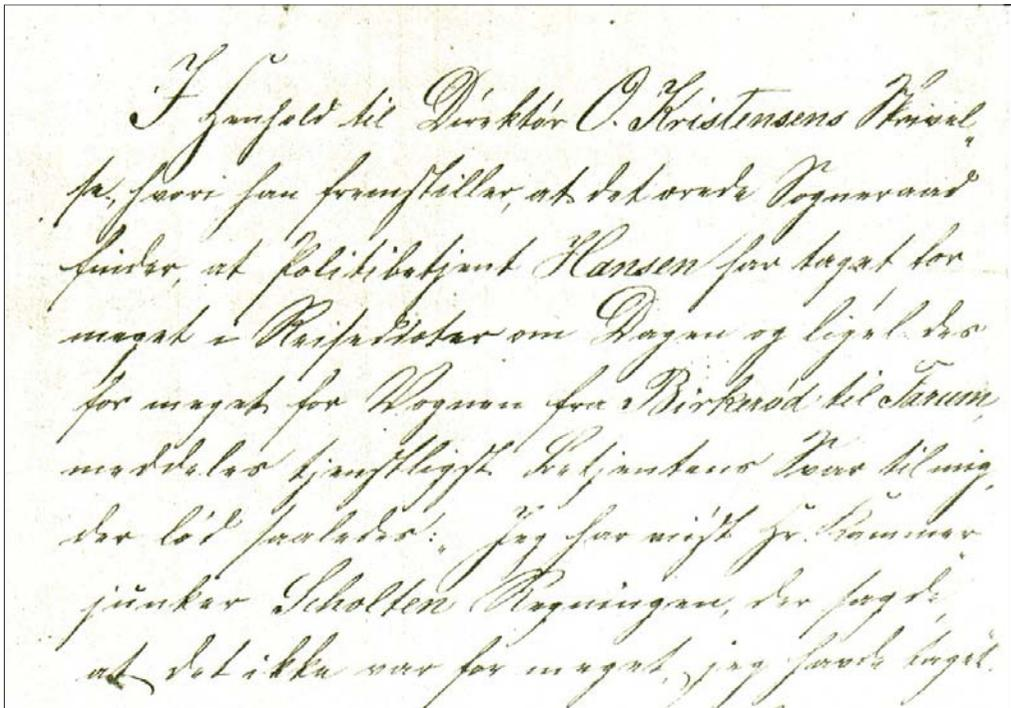 I Henhold til Direktør O. Kristensens Skrivel„
se, hvori han fremstiller, at det ærede Sogneraad
finder, at Politibetjent Hansen har taget for
meget i Reisediæter om Dagen og ligel. des
for meget for Vognen fra Birkerød til Farum,
meddeles tjenstligst Betjentens Svar til mig,
der lød saaledes: „Jeg har viist Hr. Kammer„
junker Scholten Regningen, der sagde,
at det ikke var for meget, jeg havde taget.